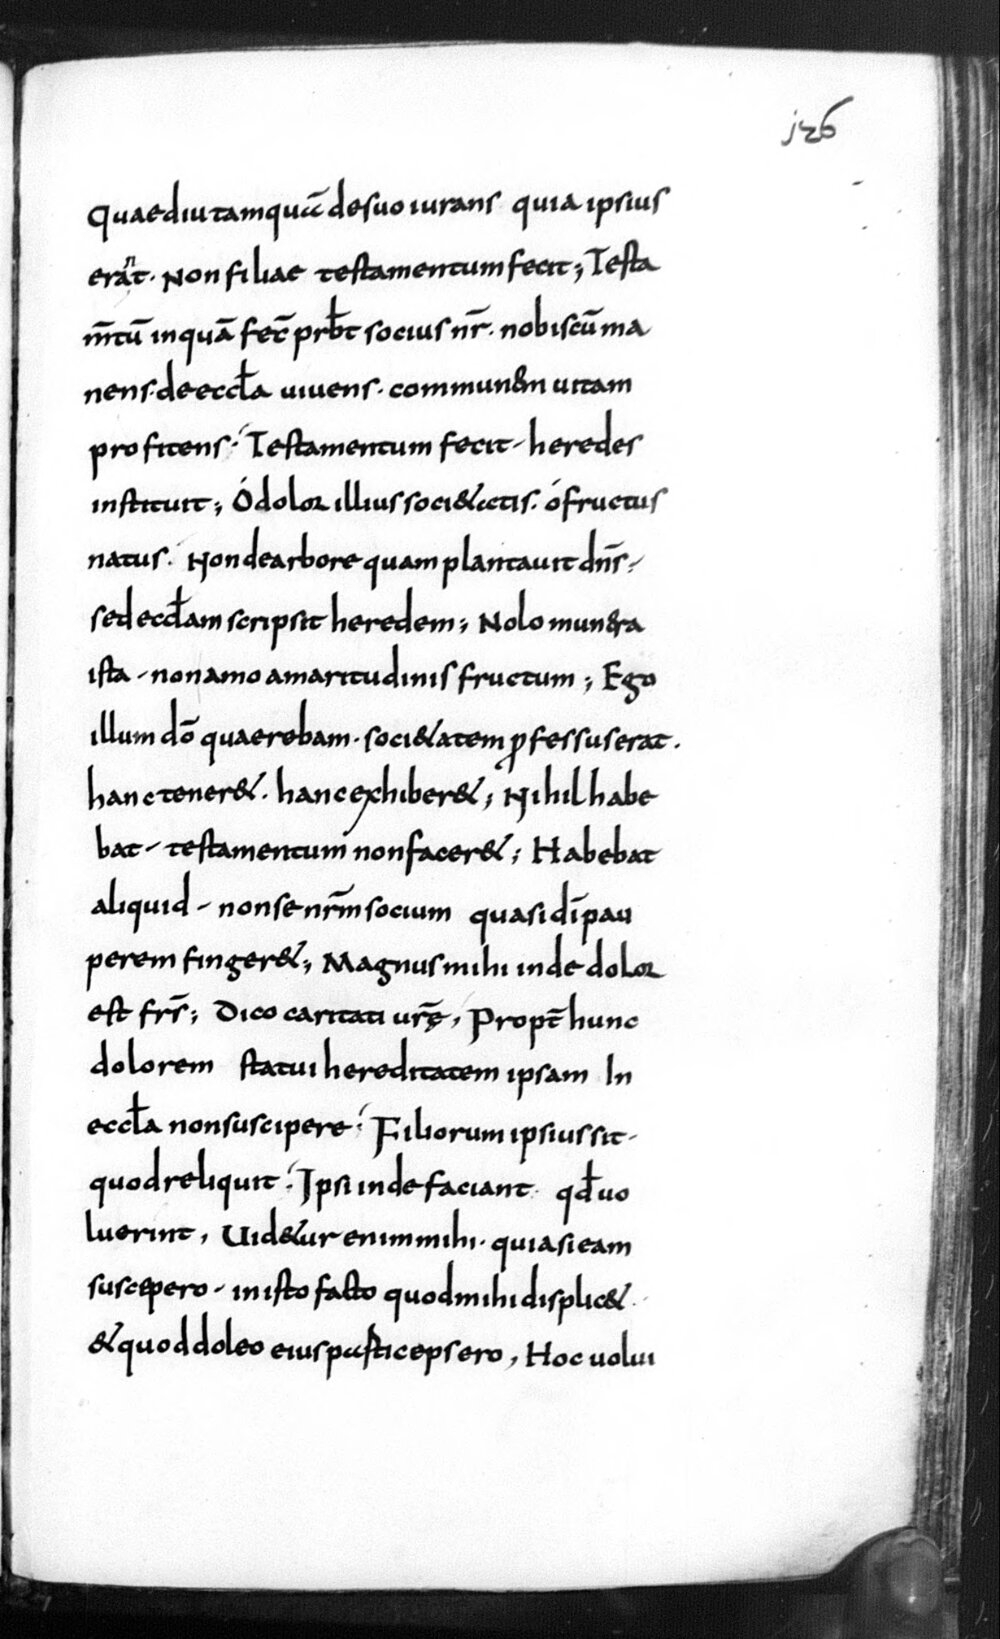 126
Quaediu tamquā de suo iurans quia ipsius
erat n̄. Non filiae testamentum fecit; Testa
m̄tū inquā fec̄ prb̄t socius nr̄. nobiscū ma
nens. de eccl̄a uiuens. commun&m uitam
profitens. Testamentum fecit. heredes
instituit; Ó dolor illius soci&atis. ó fructus
natus. Non de arbore quam plantauit dn̄s.
sed eccl̄am scripsit heredem; Nolo mun&ra
ista. non amo amaritudinis fructum; Ego
illum dō quaerebam. soci&atem ꝓfessus erat.
hanc tener&. hanc exhiber&; Nihil habe
bat. testamentum non facer&; Habebat
aliquid. non se nr̄m socium quasi dī pau
perem finger&; Magnus mihi inde dolor
est frs̄; Dico caritati urę̄, Propt̄ hunc
dolorem statui hereditatem ipsam In
eccl̄a non suscipere. Filiorum ipsius sit.
quod reliquit. Ipsi inde faciant qd̄ uo
luerint, Uid&ur enim mihi. quia si eam
suscepero. in isto facto quod mihi displic&.
& quod doleo eius particeps ero, Hoc uolui